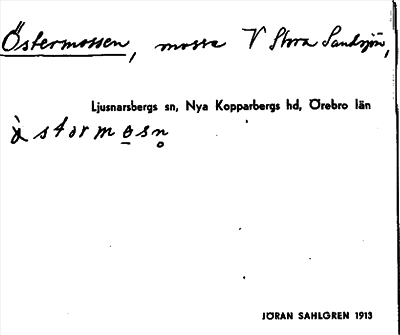 Östermossen, mosse V Stora Sandsjön,
Ljusnarsbergs sn, Nya Kopparbergs hd, Örebro län
ὰ starmo̲sn̥
JÖRAN SAHLGREN 1913